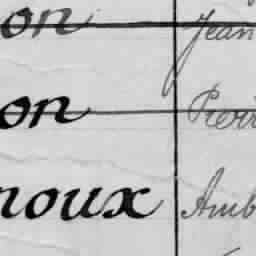 on Jean
on Pierr
noux Amb